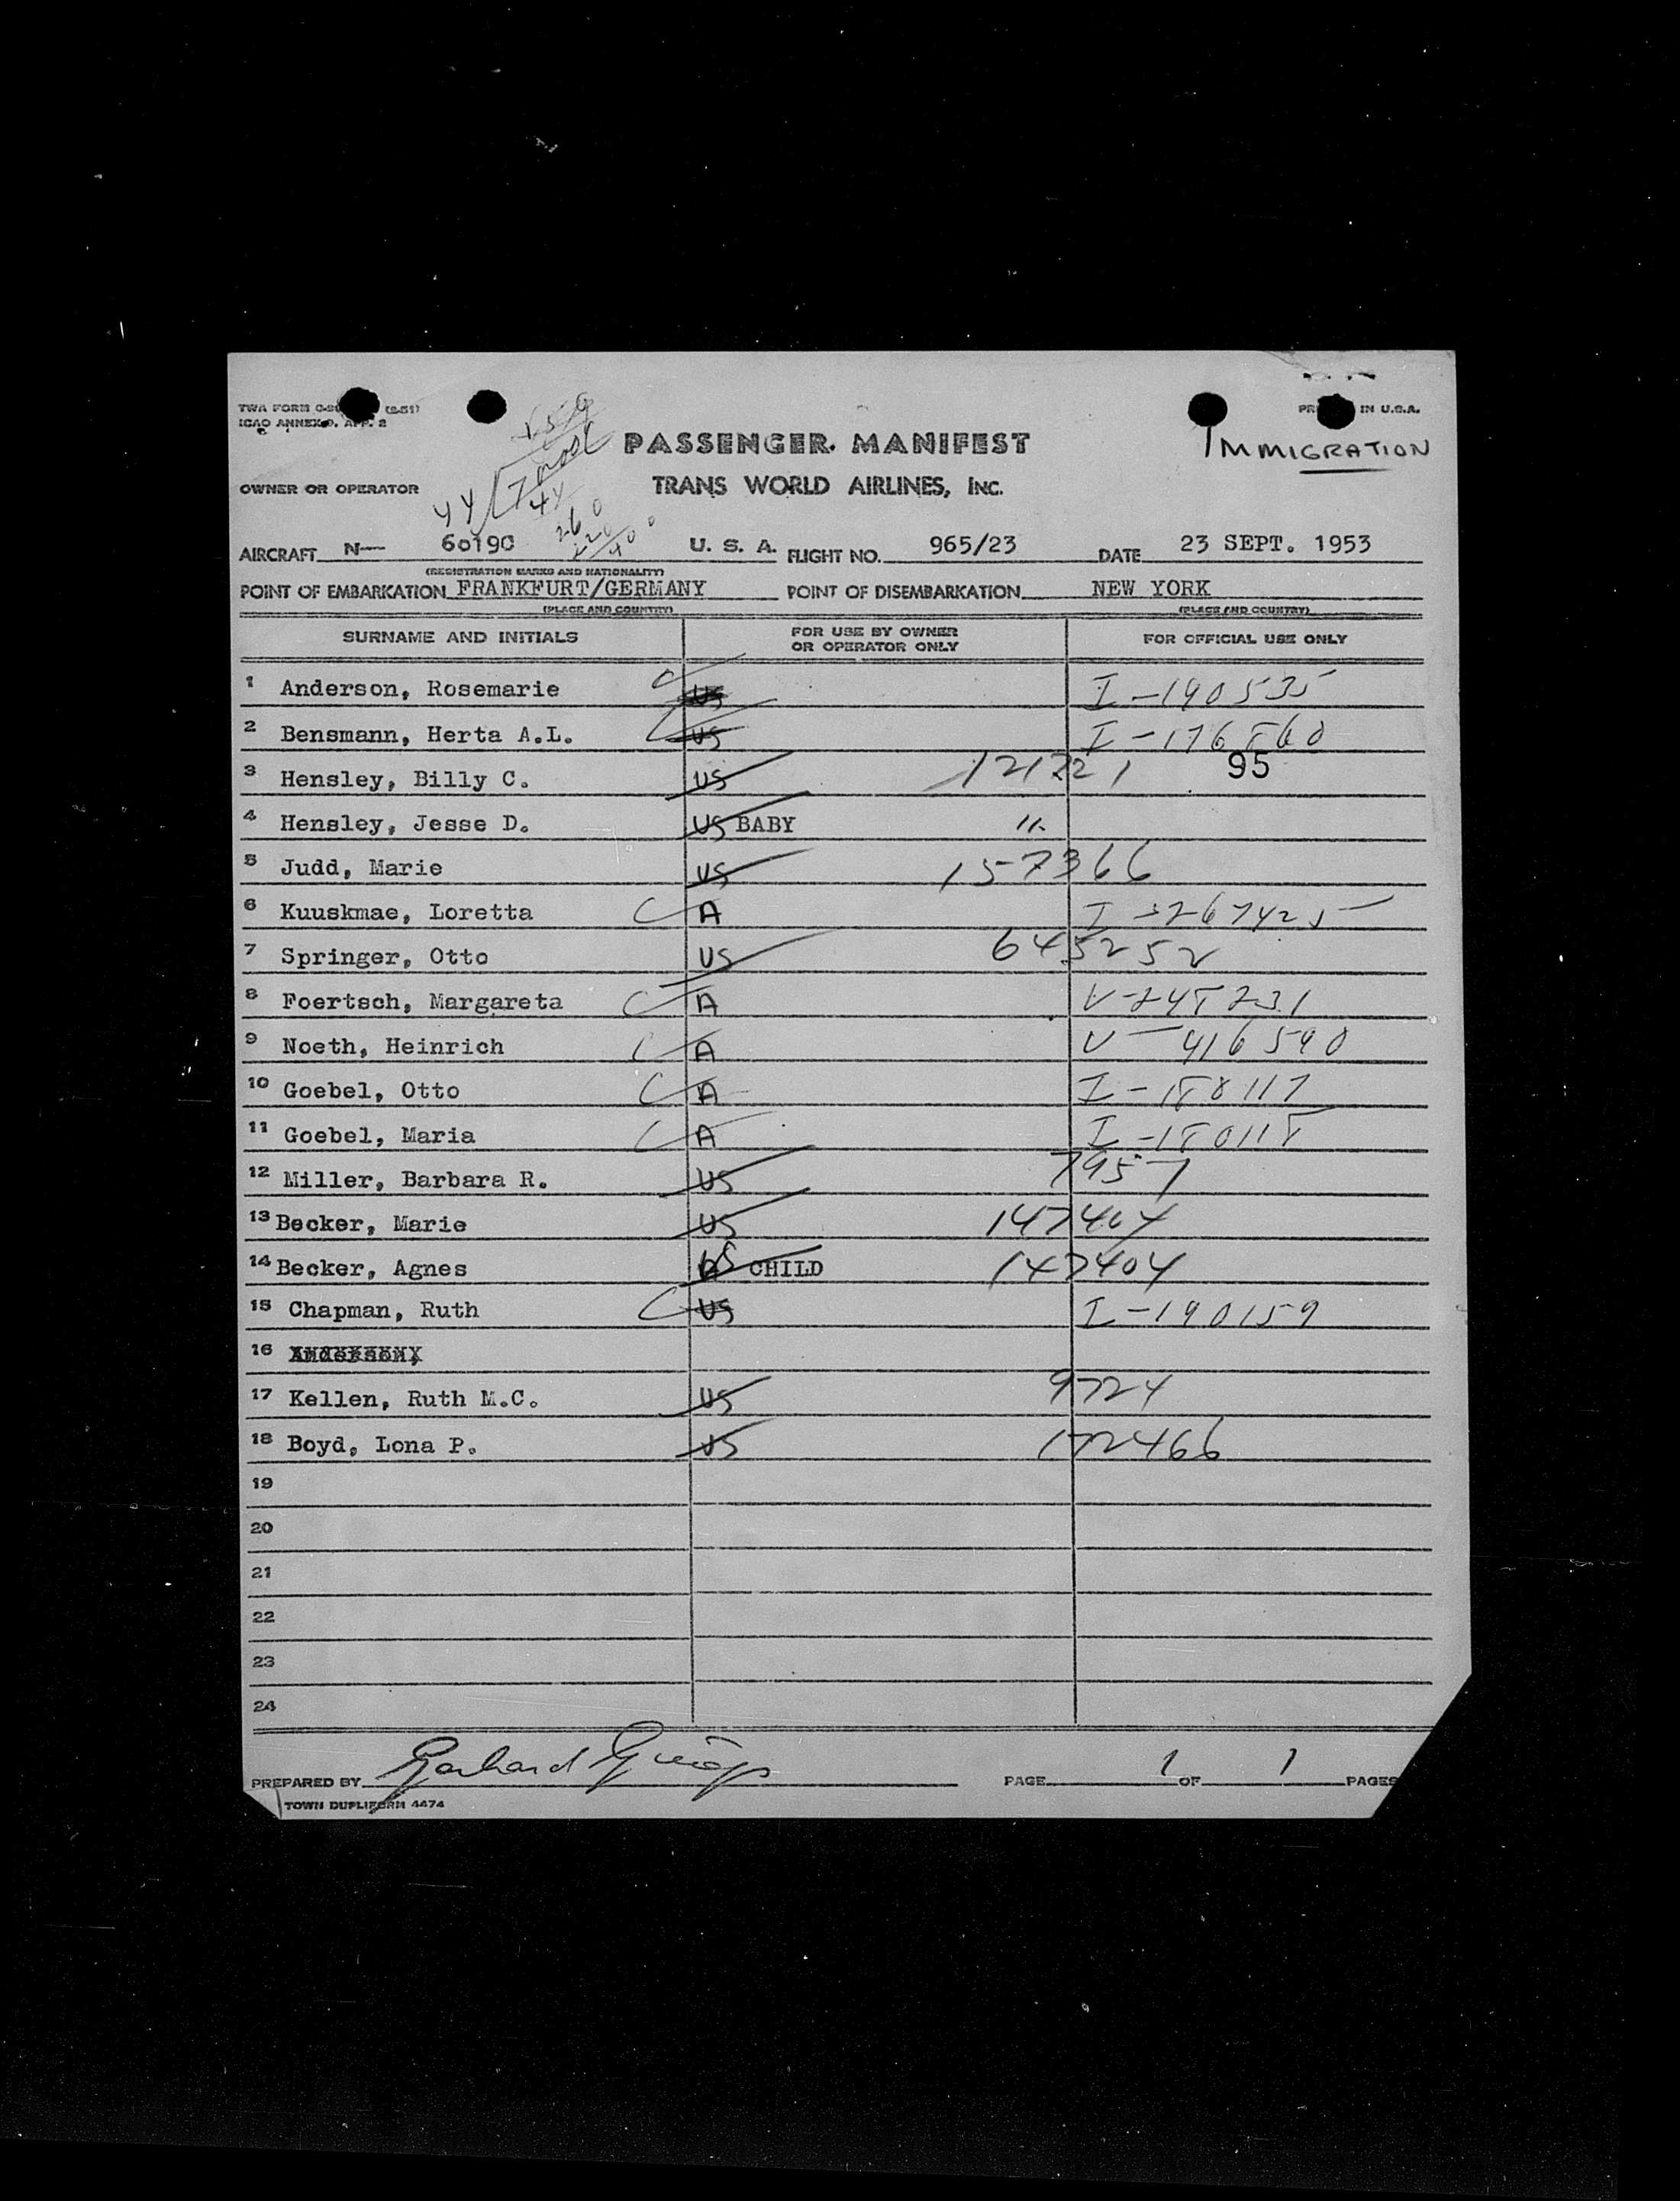 TWA FORM (2-51) PRINTED IN U.S.A.
ICAO ANNEX 9. APP. 2
IMMIGRATION
PASSENGER MANIFEST
OWNER OR OPERATOR TRANS WORLD AIRLINES, INC.
44
AIRCRAFT N— 6019C U. S. A. FLIGHT NO. 965/23 DATE 23 SEPT. 1953
(REGISTRATION MARKS AND NATIONALITY)
POINT OF EMBARKATION FRANKFURT/GERMANY POINT OF DISEMBARKATION NEW YORK
(PLACE AND COUNTRY) (PLACE AND COUNTRY)
SURNAME AND INITIALS FOR USE BY OWNER OR OPERATOR ONLY FOR OFFICIAL USE ONLY
1 Anderson, Rosemarie US I-190535
2 Bensmann, Herta A.L. US
3 Hensley, Billy C. US 121221 95
4 Hensley, Jesse D. US BABY 11.
5 Judd, Marie US 157366
6 Kuuskmae, Loretta A
7 Springer, Otto US 645252
8 Foertsch, Margareta A
9 Noeth, Heinrich A V-416590
10 Goebel, Otto A
11 Goebel, Maria A
12 Miller, Barbara R. US 7957
13 Becker, Marie US 147404
14 Becker, Agnes US CHILD 147404
15 Chapman, Ruth US I-190159
16
17 Kellen, Ruth M.C. US 9724
18 Boyd, Lona P. US 172466
19
20
21
22
23
24
PREPARED BY Gerhard PAGE 1 OF 1 PAGES
TOWN DUPLIFORM 4474